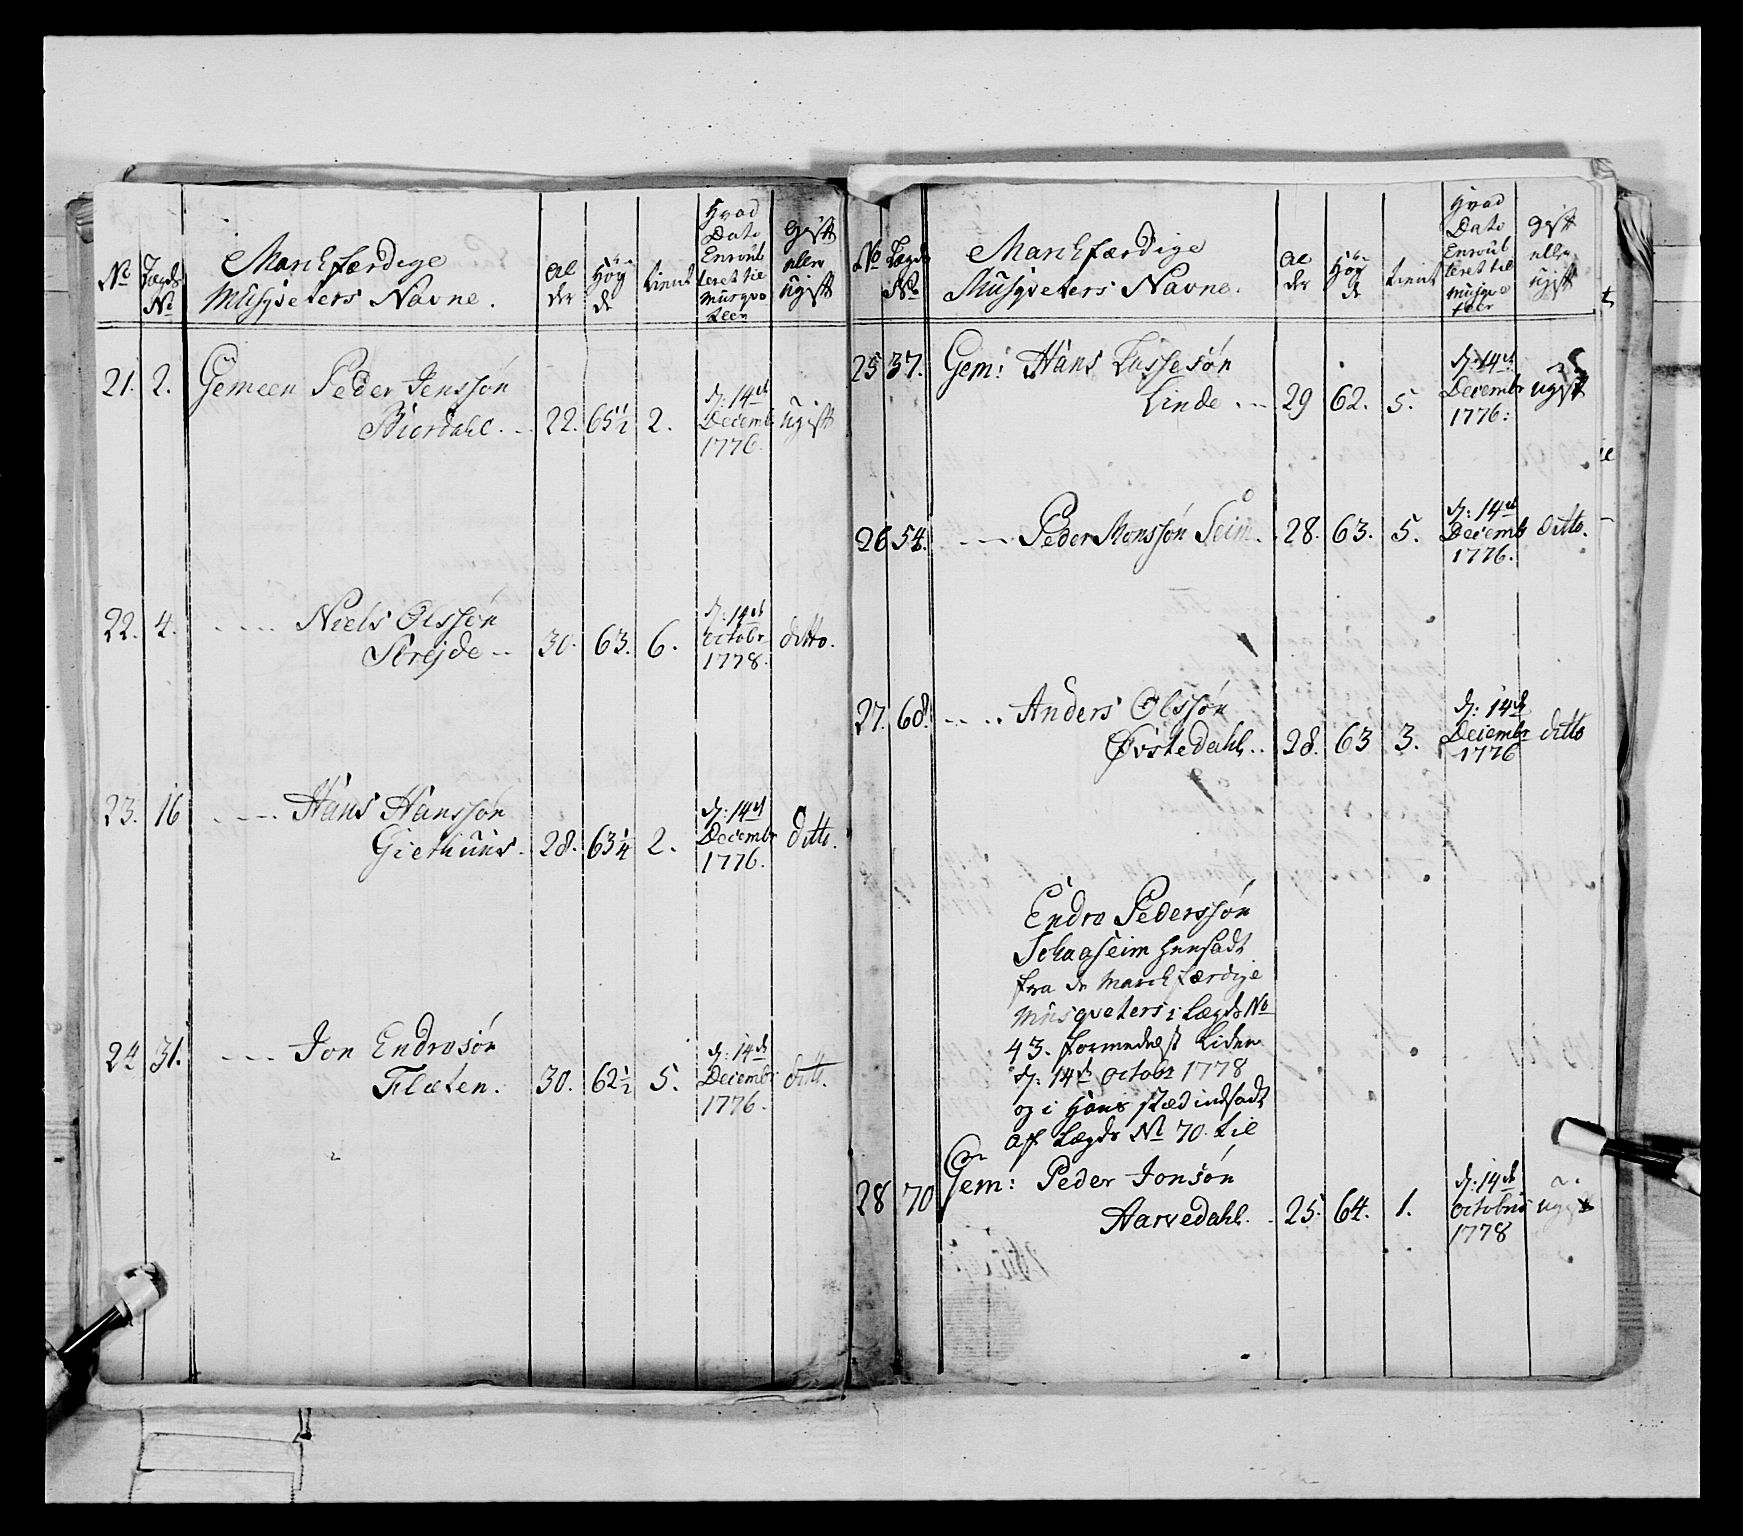 No
Lægds No
Marchfærdige
Musqveters Navne.
Alder
Høyde
tient
Hvad Dato Enroulleret til Musqveteer
Gift eller ugift
21. 2. Gemeen Peder Jenssøn
Biordahl. 22. 65½ 2. d: 14de Decembr 1776. ugift
22. 4. Niels Olssøn
30. 63. 6. d: 14de octobr 1778. ditto.
23. 16 Hans Hanssøn
Giethuus. 28. 63¼ 2. d: 14de Decembr 1776. ditto.
24 31. Jon Endresøn
Flaten. 30. 62½ 5. d: 14de Decembr 1776. ditt.
No
Lægds No
Marchfærdige
Musqveters Navne.
Alder
Høyde
tient
Hvad Dato Enroulleret til Musqveteer
Gift eller ugift
25 37. Gem: Hans Lassesøn
Linde 29 62. 5. d: 14de Decembr 1776: ugift
26 54. Peder Monssøn Seim. 28. 63. 5. d: 14de Decembr 1776. ditto.
27. 68. Anders Olssøn
Øvstedahl. 28. 63 3. d: 14de Decembr 1776 ditto
Endre Pederssøn
Schaaseim hensadt
fra de Marchfærdige
Musqveters i Lægds No
43. formedelst Liden
d: 14de octobr 1778
og i Hans stæd indsadt
af Lægds No 70. til
28 70 Gem: Peder Jonsøn
Aarvedahl. 25. 64. 1. d: 14de octobris 1778 ugift